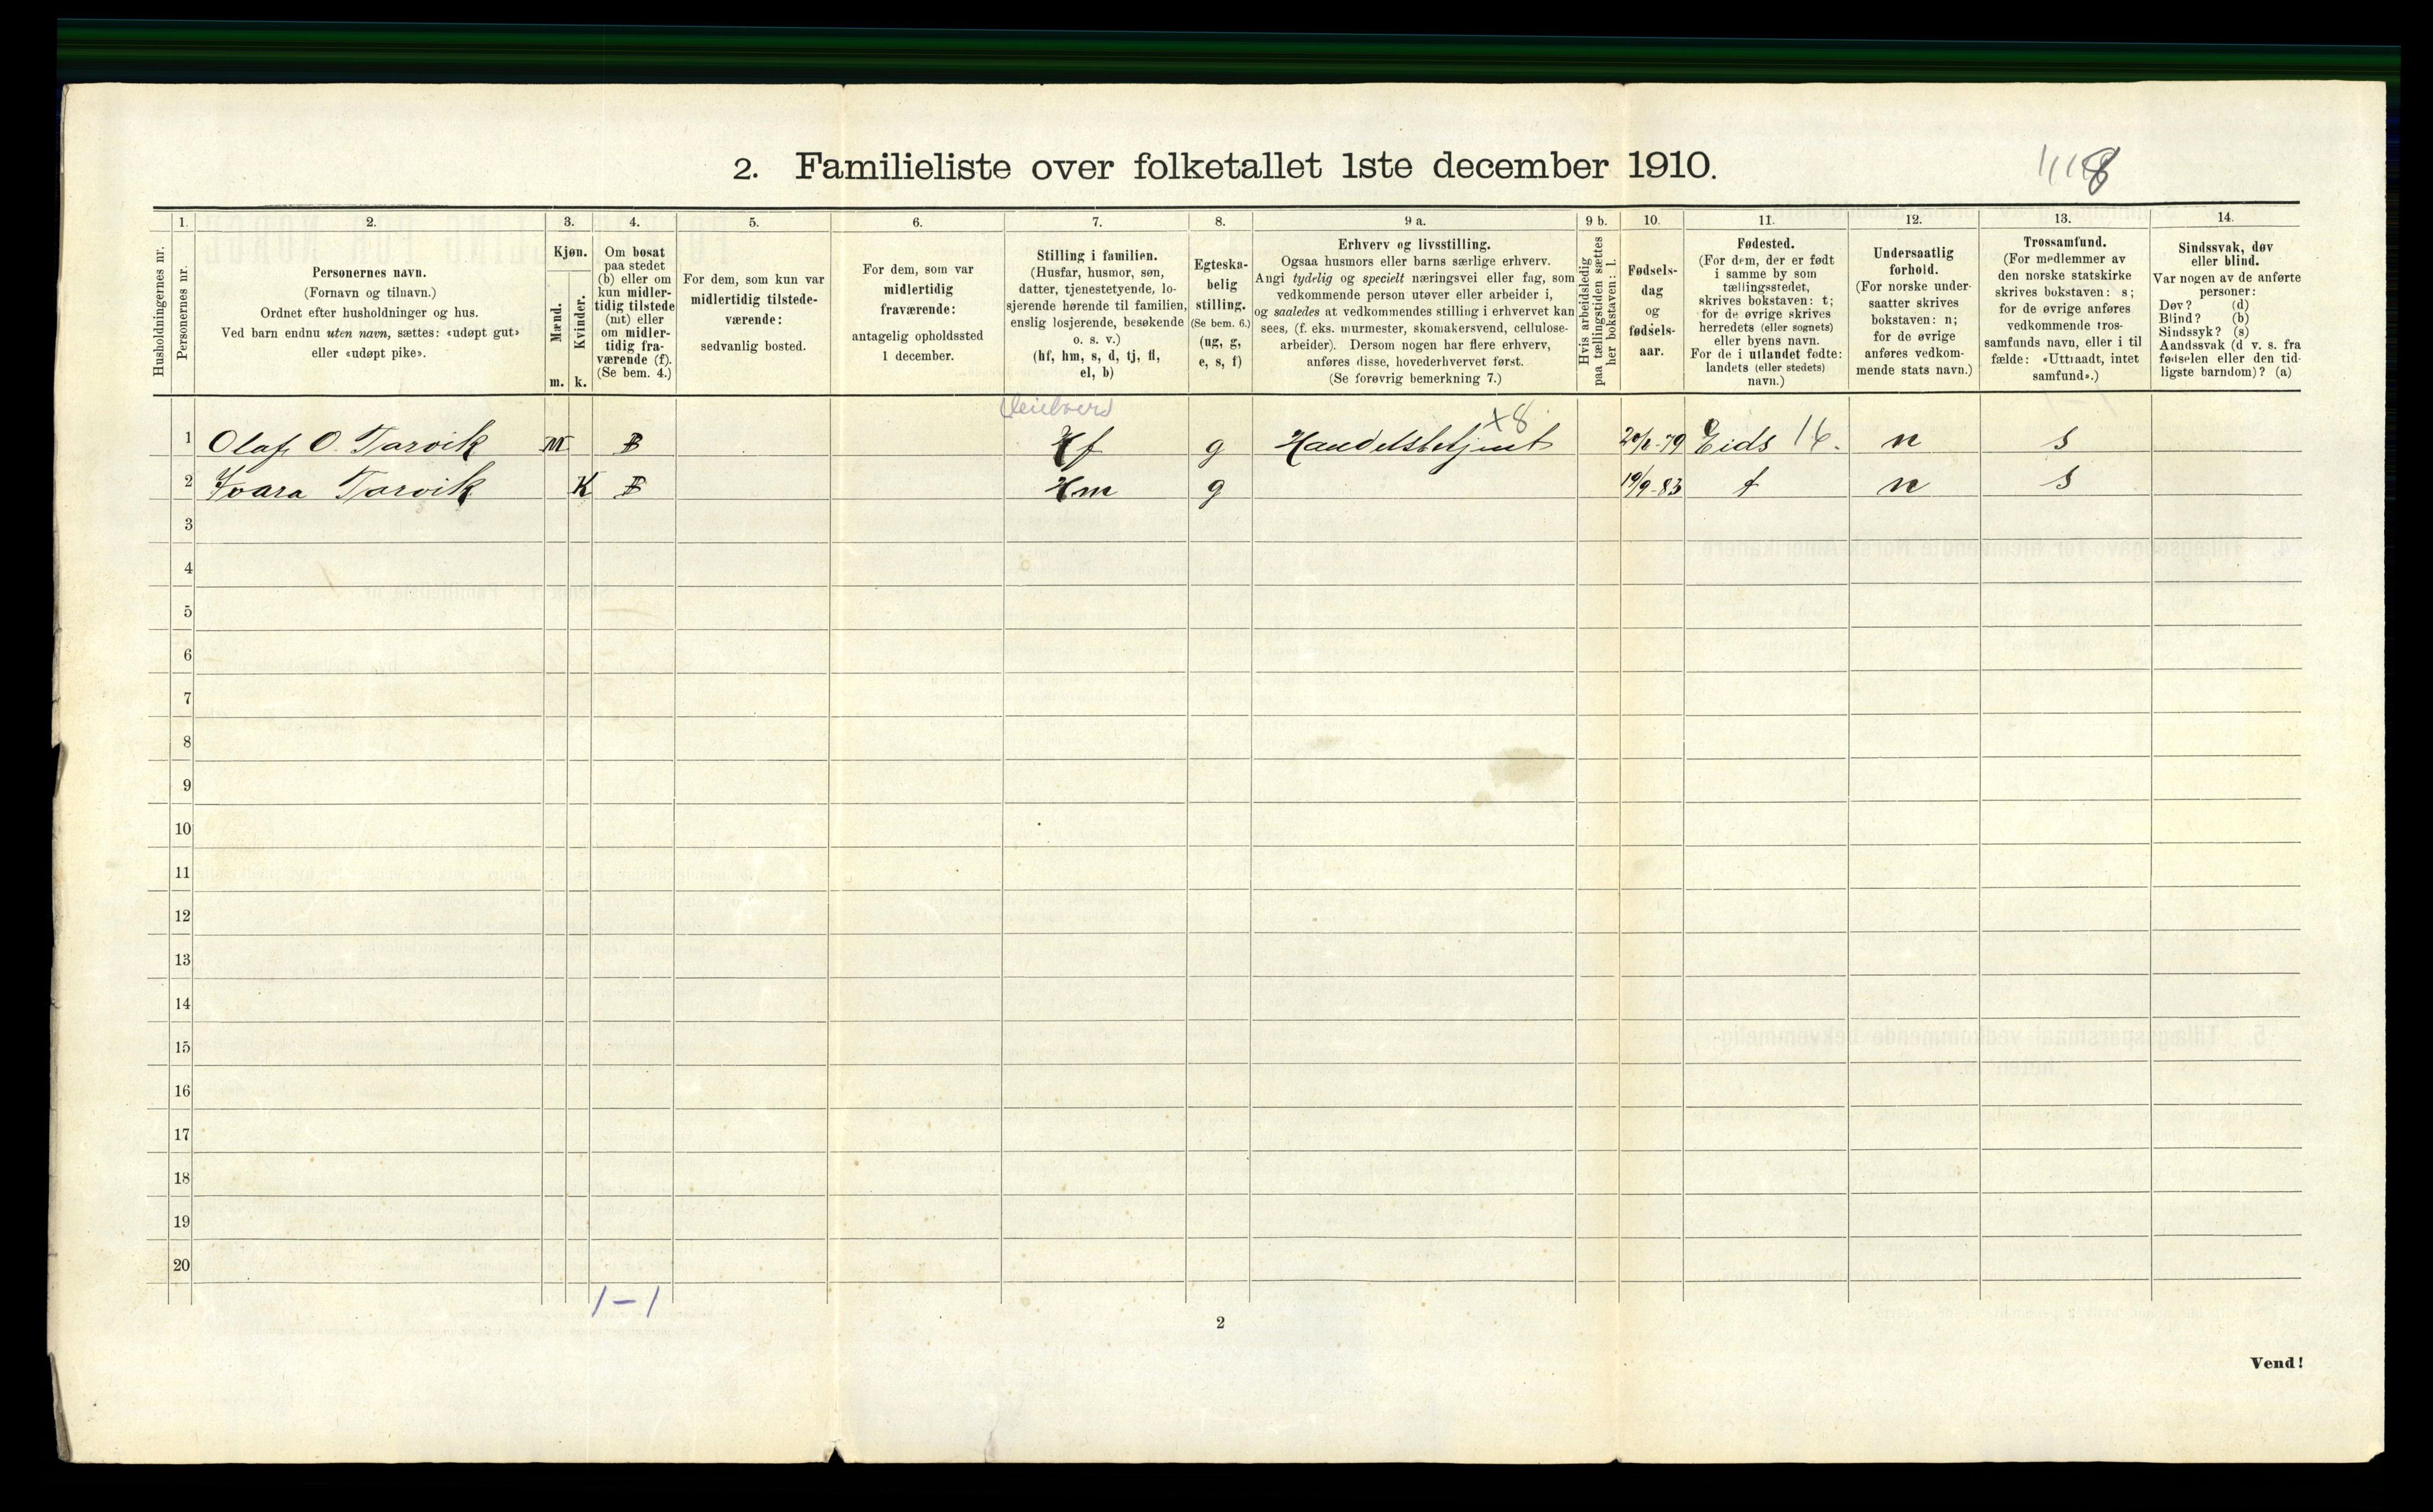 2. Familieliste over folketallet 1ste december 1910.
1. 2. 3. 4. 5. 6. 7. 8. 9 a. 9 b. 10. 11. 12. 13. 14.
Husholdningernes nr.
Personernes nr.
Personernes navn.
(Fornavn og tilnavn.)
Ordnet efter husholdninger og hus.
Ved barn endnu uten navn, sættes: «udøpt gut»
eller «udøpt pike».
Kjøn.
Mænd.
Kvinder.
m. k.
Om bosat
paa stedet
(b) eller om
kun midler-
tidig tilstede
(mt) eller
om midler-
tidig fra-
værende (f).
(Se bem. 4.)
For dem, som kun var
midlertidig tilstede-
værende:
sedvanlig bosted.
For dem, som var
midlertidig
fraværende:
antagelig opholdssted
1 december.
Stilling i familien.
(Husfar, husmor, søn,
datter, tjenestetyende, lo-
sjerende hørende til familien,
enslig losjerende, besøkende
o. s. v.)
(hf, hm, s, d, tj, fl,
el, b)
Egteska-
belig
stilling.
(Se bem. 6.)
(ug, g,
e, s, f)
Erhverv og livsstilling.
Ogsaa husmors eller barns særlige erhverv.
Angi tydelig og specielt næringsvei eller fag, som
vedkommende person utøver eller arbeider i,
og saaledes at vedkommendes stilling i erhvervet kan
sees, (f. eks. murmester, skomakersvend, cellulose-
arbeider). Dersom nogen har flere erhverv,
anføres disse, hovederhvervet først.
(Se forøvrig bemerkning 7.)
Hvis arbeidsledig
paa tællingstiden sættes
her bokstaven: l.
Fødsels-
dag
og
fødsels-
aar.
Fødested.
(For dem, der er født
i samme by som
tællingsstedet,
skrives bokstaven: t;
for de øvrige skrives
herredets (eller sognets)
eller byens navn.
For de i utlandet fødte:
landets (eller stedets)
navn.)
Undersaatlig
forhold.
(For norske under-
saatter skrives
bokstaven: n;
for de øvrige
anføres vedkom-
mende stats navn.)
Trossamfund.
(For medlemmer av
den norske statskirke
skrives bokstaven: s;
for de øvrige anføres
vedkommende tros-
samfunds navn, eller i til
fælde: «Uttraadt, intet
samfund».)
Sindssvak, døv
eller blind.
Var nogen av de anførte
personer:
Døv? (d)
Blind? (b)
Sindssyk? (s)
Aandssvak (d v. s. fra
fødselen eller den tid-
ligste barndom)? (a)
x8
1 Olaf O. Tarvik M B Hf g Handelsbetjent Eids 16. n s
2 Ivara Tarvik K B Hm g 19/9-83 t n s
3
4
5
6
7
8
9
10
11
12
13
14
15
16
17
18
19
20
1-1
2
Vend!